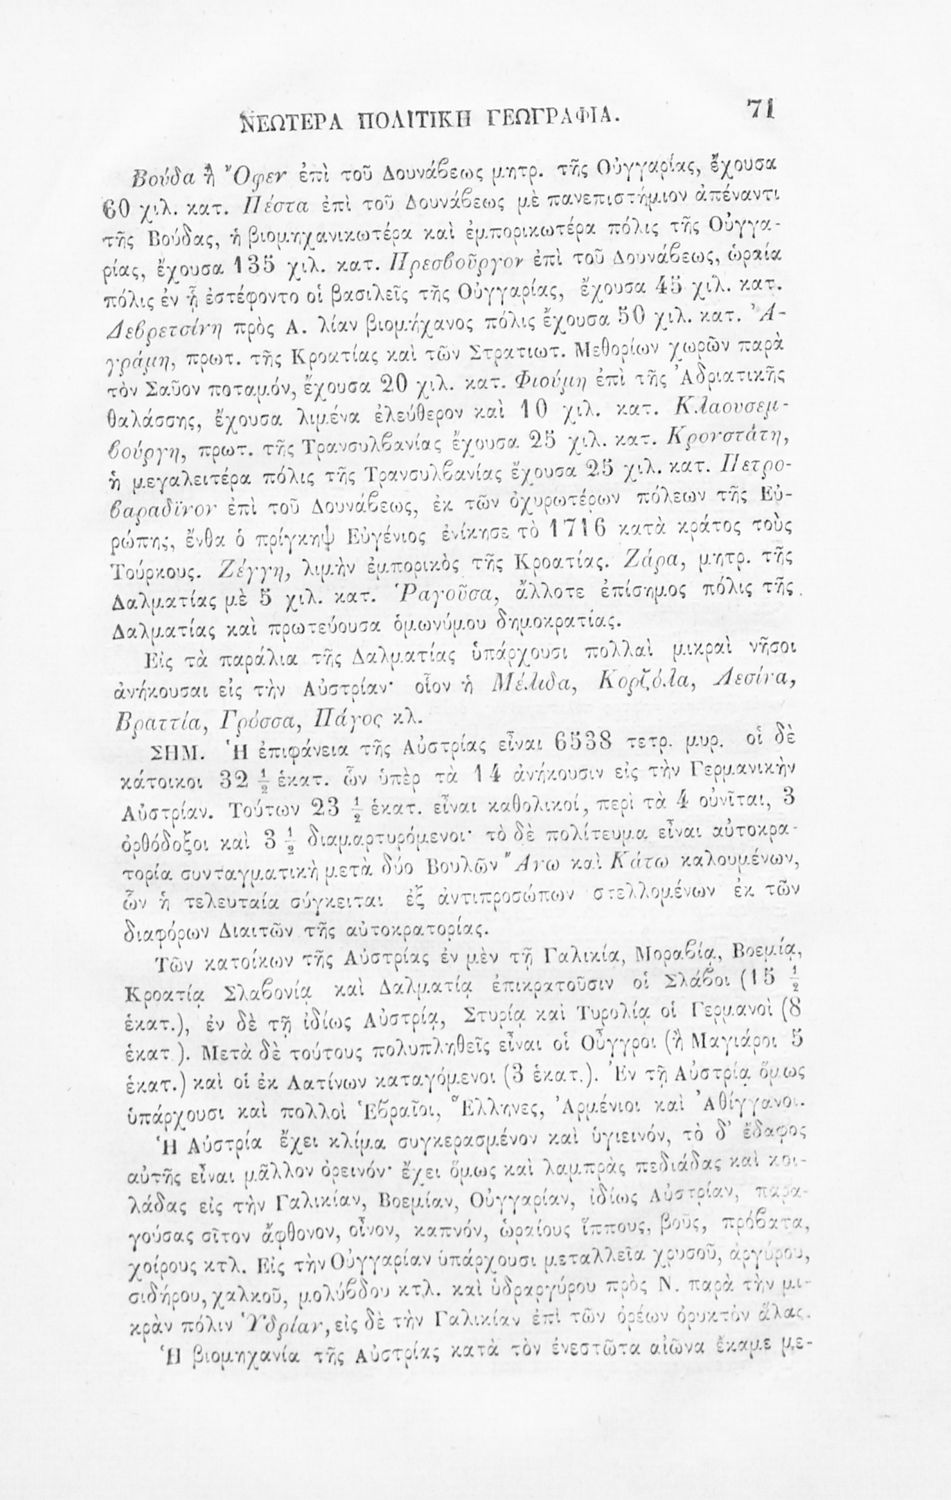 ΝΕΩΤΕΡΑ ΠΟΛΙΤΙΚΗ ΓΕΩΓΡΑΦΙΑ. 71
Βούδα ἢ Ὄφεν ἐπὶ τοῦ Δουνάβεως μητρ. τῆς Οὐγγαρίας, ἔχουσα
60 χιλ. κατ. Πέστα ἐπὶ τοῦ Δουνάβεως μὲ πανεπιστήμιον ἀπέναντι
τῆς Βούδας, ἡ βιομηχανικωτέρα καὶ ἐμπορικωτέρα πόλις τῆς Οὐγγα-
ρίας, ἔχουσα 135 χιλ. κατ. Πρεσβοῦργον ἐπὶ τοῦ Δουνάβεως, ὡραία
πόλις ἐν ᾗ ἐστέφοντο οἱ βασιλεῖς τῆς Οὐγγαρίας, ἔχουσα 45 χιλ. κατ.
Δεβρετσίνη πρὸς Α. λίαν βιομήχανος πόλις ἔχουσα 50 χιλ. κατ. Ἀ-
γράμη, πρωτ. τῆς Κροατίας καὶ τῶν Στρατιωτ. Μεθορίων χωρῶν παρὰ
τὸν Σαῦον ποταμόν, ἔχουσα 20 χιλ. κατ. Φιούμη ἐπὶ τῆς Ἀδριατικῆς
θαλάσσης, ἔχουσα λιμένα ἐλεύθερον καὶ 10 χιλ. κατ. Κλαουσεμ-
βούργη, πρωτ. τῆς Τρανσυλβανίας ἔχουσα 25 χιλ. κατ. Κρονστάτη,
ἡ μεγαλειτέρα πόλις τῆς Τρανσυλβανίας ἔχουσα 25 χιλ. κατ. Πετρο-
βαραδῖνον ἐπὶ τοῦ Δουνάβεως, ἐκ τῶν ὀχυρωτέρων πόλεων τῆς Εὐ-
ρώπης, ἔνθα ὁ πρίγκηψ Εὐγένιος ἐνίκησε τὸ 1716 κατὰ κράτος τοὺς
Τούρκους. Ζέγγη, λιμὴν ἐμπορικὸς τῆς Κροατίας. Ζάρα, μητρ. τῆς
Δαλματίας μὲ 5 χιλ. κατ. Ῥαγοῦσα, ἄλλοτε ἐπίσημος πόλις τῆς
Δαλματίας καὶ πρωτεύουσα ὁμωνύμου δημοκρατίας.
Εἰς τὰ παράλια τῆς Δαλματίας ὑπάρχουσι πολλαὶ μικραὶ νῆσοι
ἀνήκουσαι εἰς τὴν Αὐστρίαν· οἷον ἡ Μέλιδα, Κορζόλα, Λεσίνα,
Βραττία, Γρόσσα, Πάγος κλ.
ΣΗΜ. Ἡ ἐπιφάνεια τῆς Αὐστρίας εἶναι 6538 τετρ. μυρ. οἱ δὲ
κάτοικοι 32 ½ ἑκατ. ὧν ὑπὲρ τὰ 14 ἀνήκουσιν εἰς τὴν Γερμανικὴν
Αὐστρίαν. Τούτων 23 ½ ἑκατ. εἶναι καθολικοί, περὶ τὰ 4 οὐνῖται, 3
ὀρθόδοξοι καὶ 3 ½ διαμαρτυρόμενοι· τὸ δὲ πολίτευμα εἶναι αὐτοκρα-
τορία συνταγματικὴ μετὰ δύο Βουλῶν Ἄνω καὶ Κάτω καλουμένων,
ὧν ἡ τελευταία σύγκειται ἐξ ἀντιπροσώπων στελλομένων ἐκ τῶν
διαφόρων Διαιτῶν τῆς αὐτοκρατορίας.
Τῶν κατοίκων τῆς Αὐστρίας ἐν μὲν τῇ Γαλικίᾳ, Μοραβίᾳ, Βοεμίᾳ,
Κροατίᾳ Σλαβονίᾳ καὶ Δαλματίᾳ ἐπικρατοῦσιν οἱ Σλάβοι (15 ½
ἑκατ.), ἐν δὲ τῇ ἰδίως Αὐστρίᾳ, Στυρίᾳ καὶ Τυρολίᾳ οἱ Γερμανοὶ (8
ἑκατ.). Μετὰ δὲ τούτους πολυπληθεῖς εἶναι οἱ Οὖγγροι (ἢ Μαγιάροι 5
ἑκατ.) καὶ οἱ ἐκ Λατίνων καταγόμενοι (3 ἑκατ.). Ἐν τῇ Αὐστρίᾳ ὅμως
ὑπάρχουσι καὶ πολλοὶ Ἑβραῖοι, Ἕλληνες, Ἀρμένιοι καὶ Ἀθίγγανοι.
Ἡ Αὐστρία ἔχει κλίμα συγκερασμένον καὶ ὑγιεινόν, τὸ δ' ἔδαφος
αὐτῆς εἶναι μᾶλλον ὀρεινόν· ἔχει ὅμως καὶ λαμπρὰς πεδιάδας καὶ κοι-
λάδας εἰς τὴν Γαλικίαν, Βοεμίαν, Οὐγγαρίαν, ἰδίως Αὐστρίαν, παρα-
γούσας σῖτον ἄφθονον, οἶνον, καπνόν, ὡραίους ἵππους, βοῦς, πρόβατα,
χοίρους κτλ. Εἰς τὴν Οὐγγαρίαν ὑπάρχουσι μεταλλεῖα χρυσοῦ, ἀργύρου,
σιδήρου, χαλκοῦ, μολύβδου κτλ. καὶ ὑδραργύρου πρὸς Ν. παρὰ τὴν μι-
κρὰν πόλιν Ὑδρίαν, εἰς δὲ τὴν Γαλικίαν ἐπὶ τῶν ὀρέων ὀρυκτὸν ἅλας.
Ἡ βιομηχανία τῆς Αὐστρίας κατὰ τὸν ἐνεστῶτα αἰῶνα ἔκαμε με-